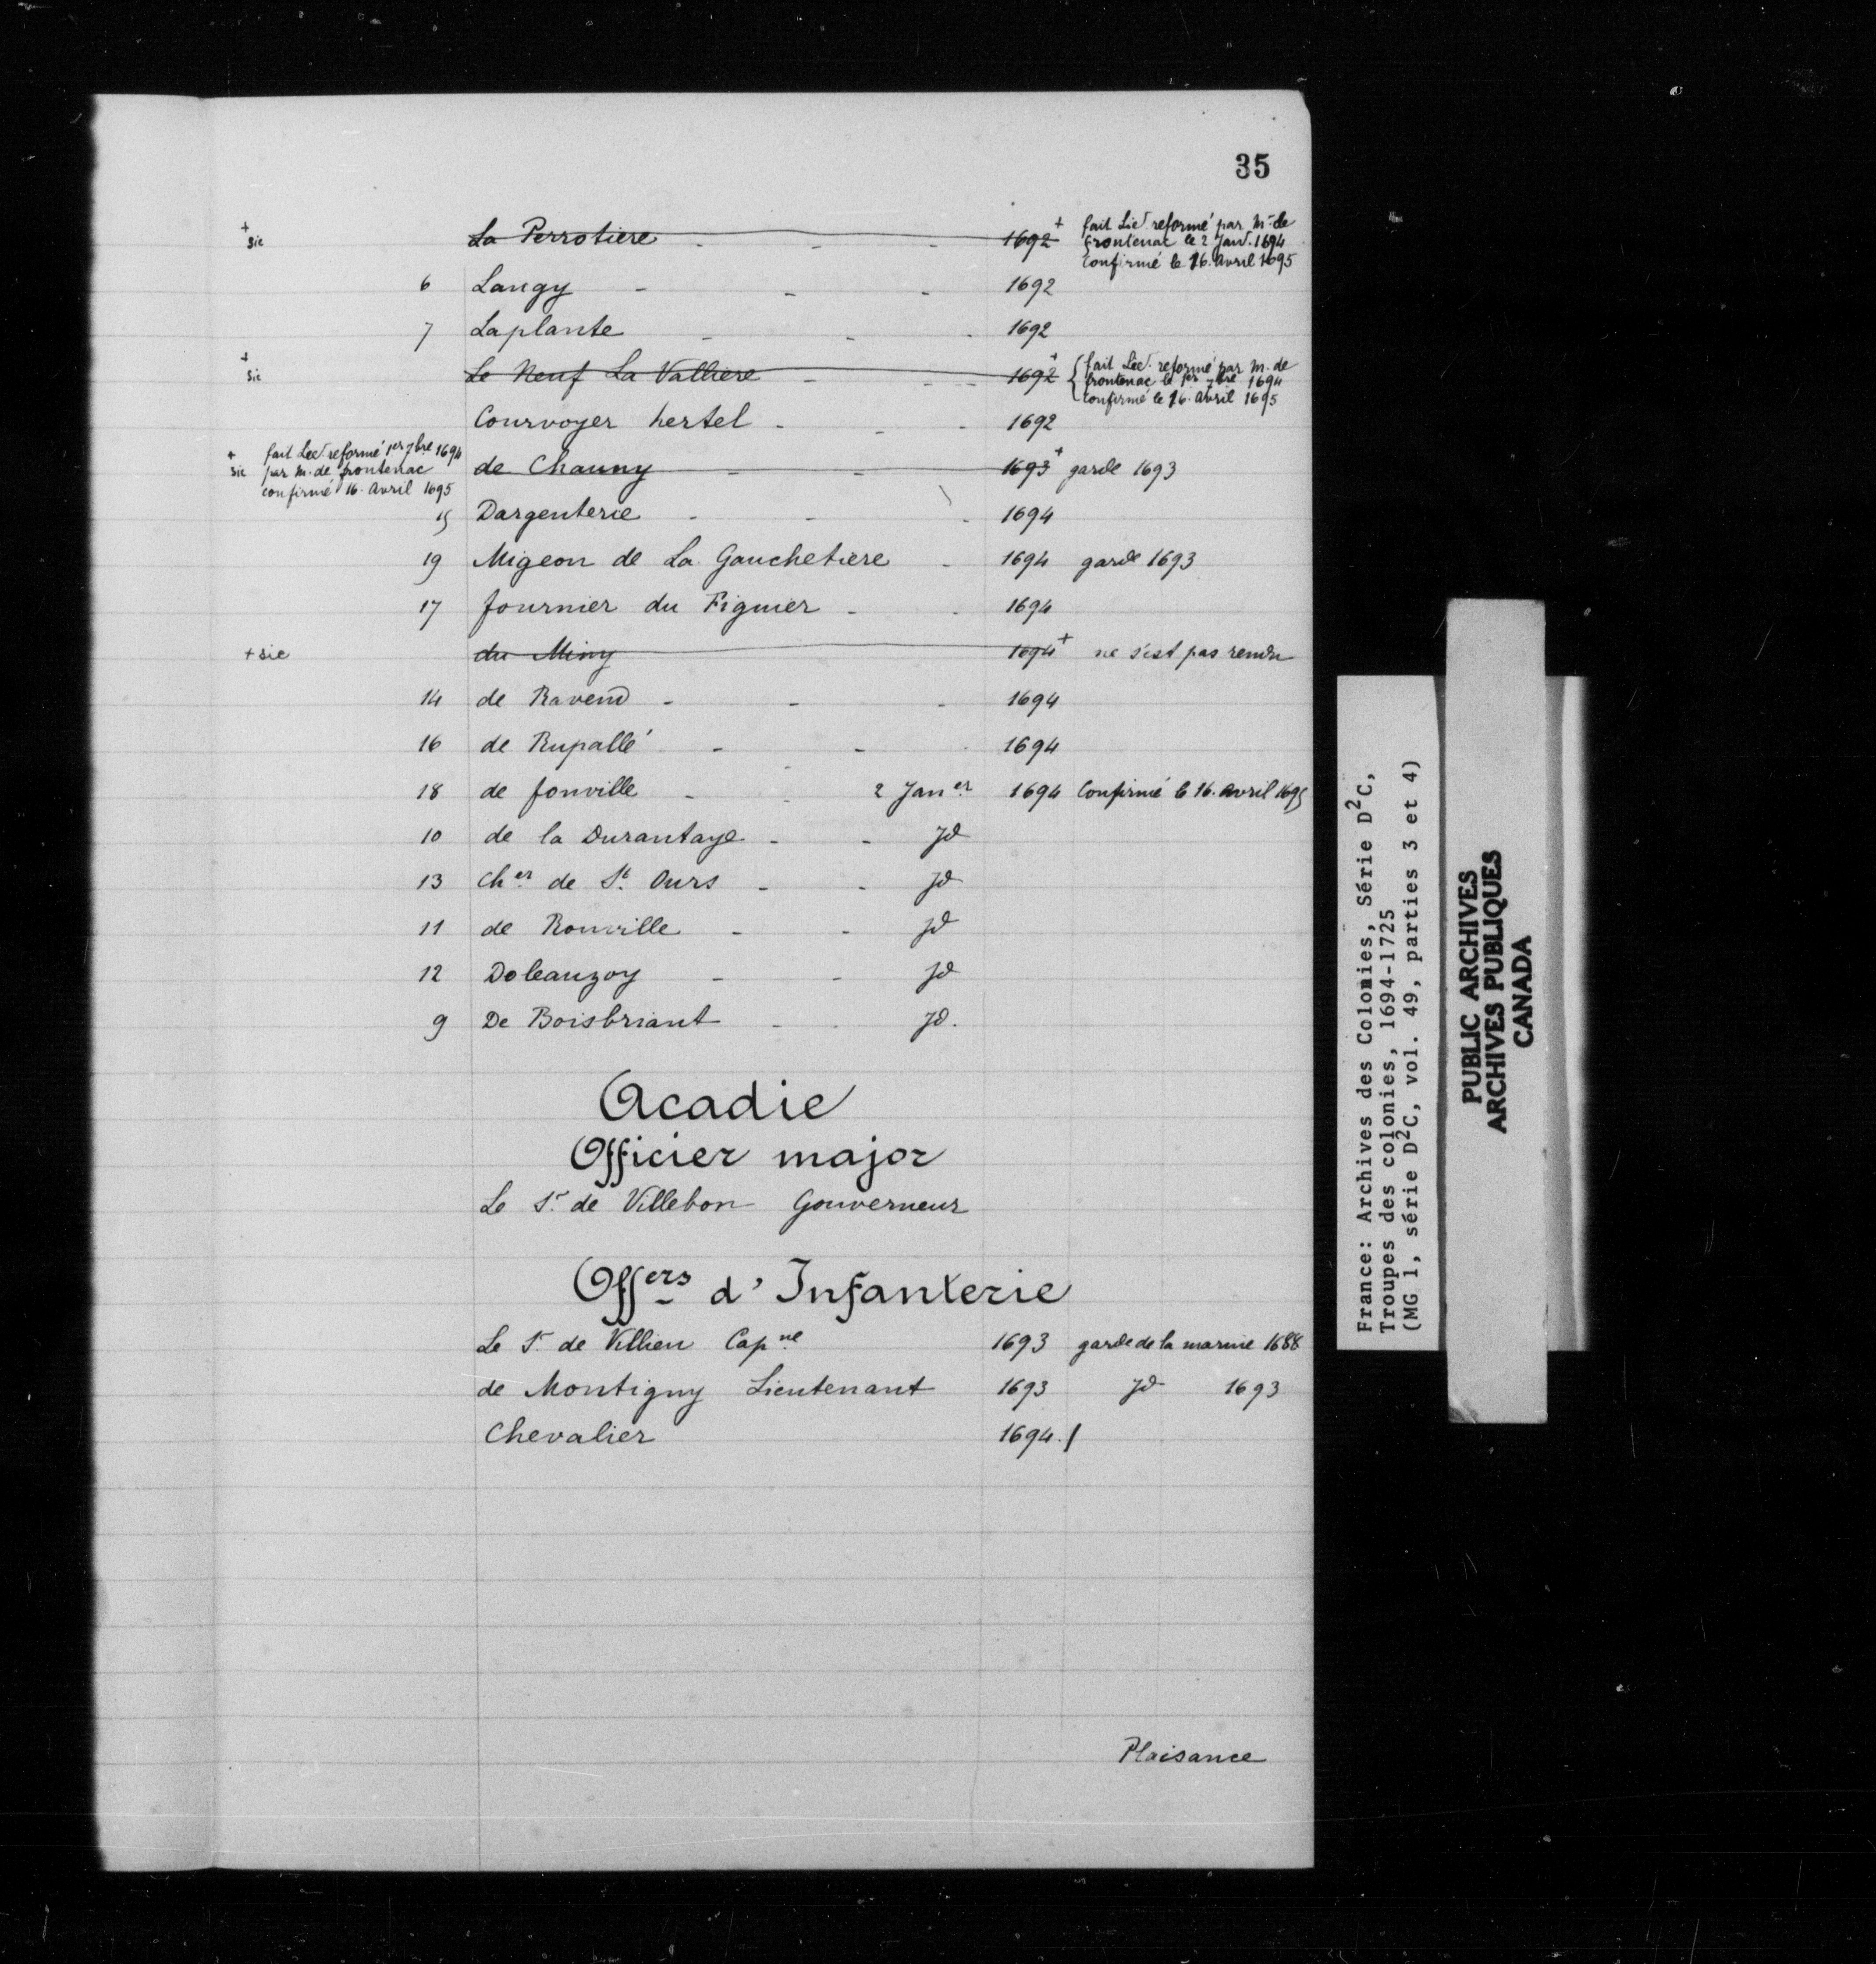 35
+ sic La Perrotiere - - - 1692+ fait Lieu.t reformé par Mr. de
frontenac le 2 Janv. 1694
Confirmé le 16. Avril 1695
6 Langy - - - 1692
7 Laplante - - - 1692
+ sic Le Neuf La Valliere - - - 1692+ fait Lieu.t reformé par M. de
frontenac le 1er 7bre 1694
confirmé le 16. Avril 1695
Courvoyer hertel - - - 1692
fait Lieu.t reformé 1er 7bre 1694
+ sic par M. de frontenac
confirmé 16. Avril 1695
de Chauny - - 1693+ garde 1693
15 Dargenterie - - - 1694
19 Migeon de La Gauchetiere - 1694 garde 1693
17 fournier du Figuier - - 1694
+ sic du Miny 1694+ ne s'est pas rendu
14 de Ravend - - - 1694
16 de Rupallé - - - 1694
18 de fonville - - 2 Janer 1694 Confirmé le 16. Avril 1695
10 de la Durantaye - - Jd
13 Cher de St. Ours - - Jd
11 de Rouville - - Jd
12 Doleanzoy - - Jd
9 De Boisbriant - - Jd.
Acadie
Officier major
Le Sr. de Villebon Gouverneur
Offers d'Infanterie
Le Sr. de Villieu Capne 1693 garde de la marine 1688
de Montigny Lieutenant 1693 Jd 1693
Chevalier 1694./
Plaisance
France: Archives des Colonies, Série D²C,
Troupes des colonies, 1694-1725
(MG 1, série D²C, vol. 49, parties 3 et 4)
PUBLIC ARCHIVES
ARCHIVES PUBLIQUES
CANADA